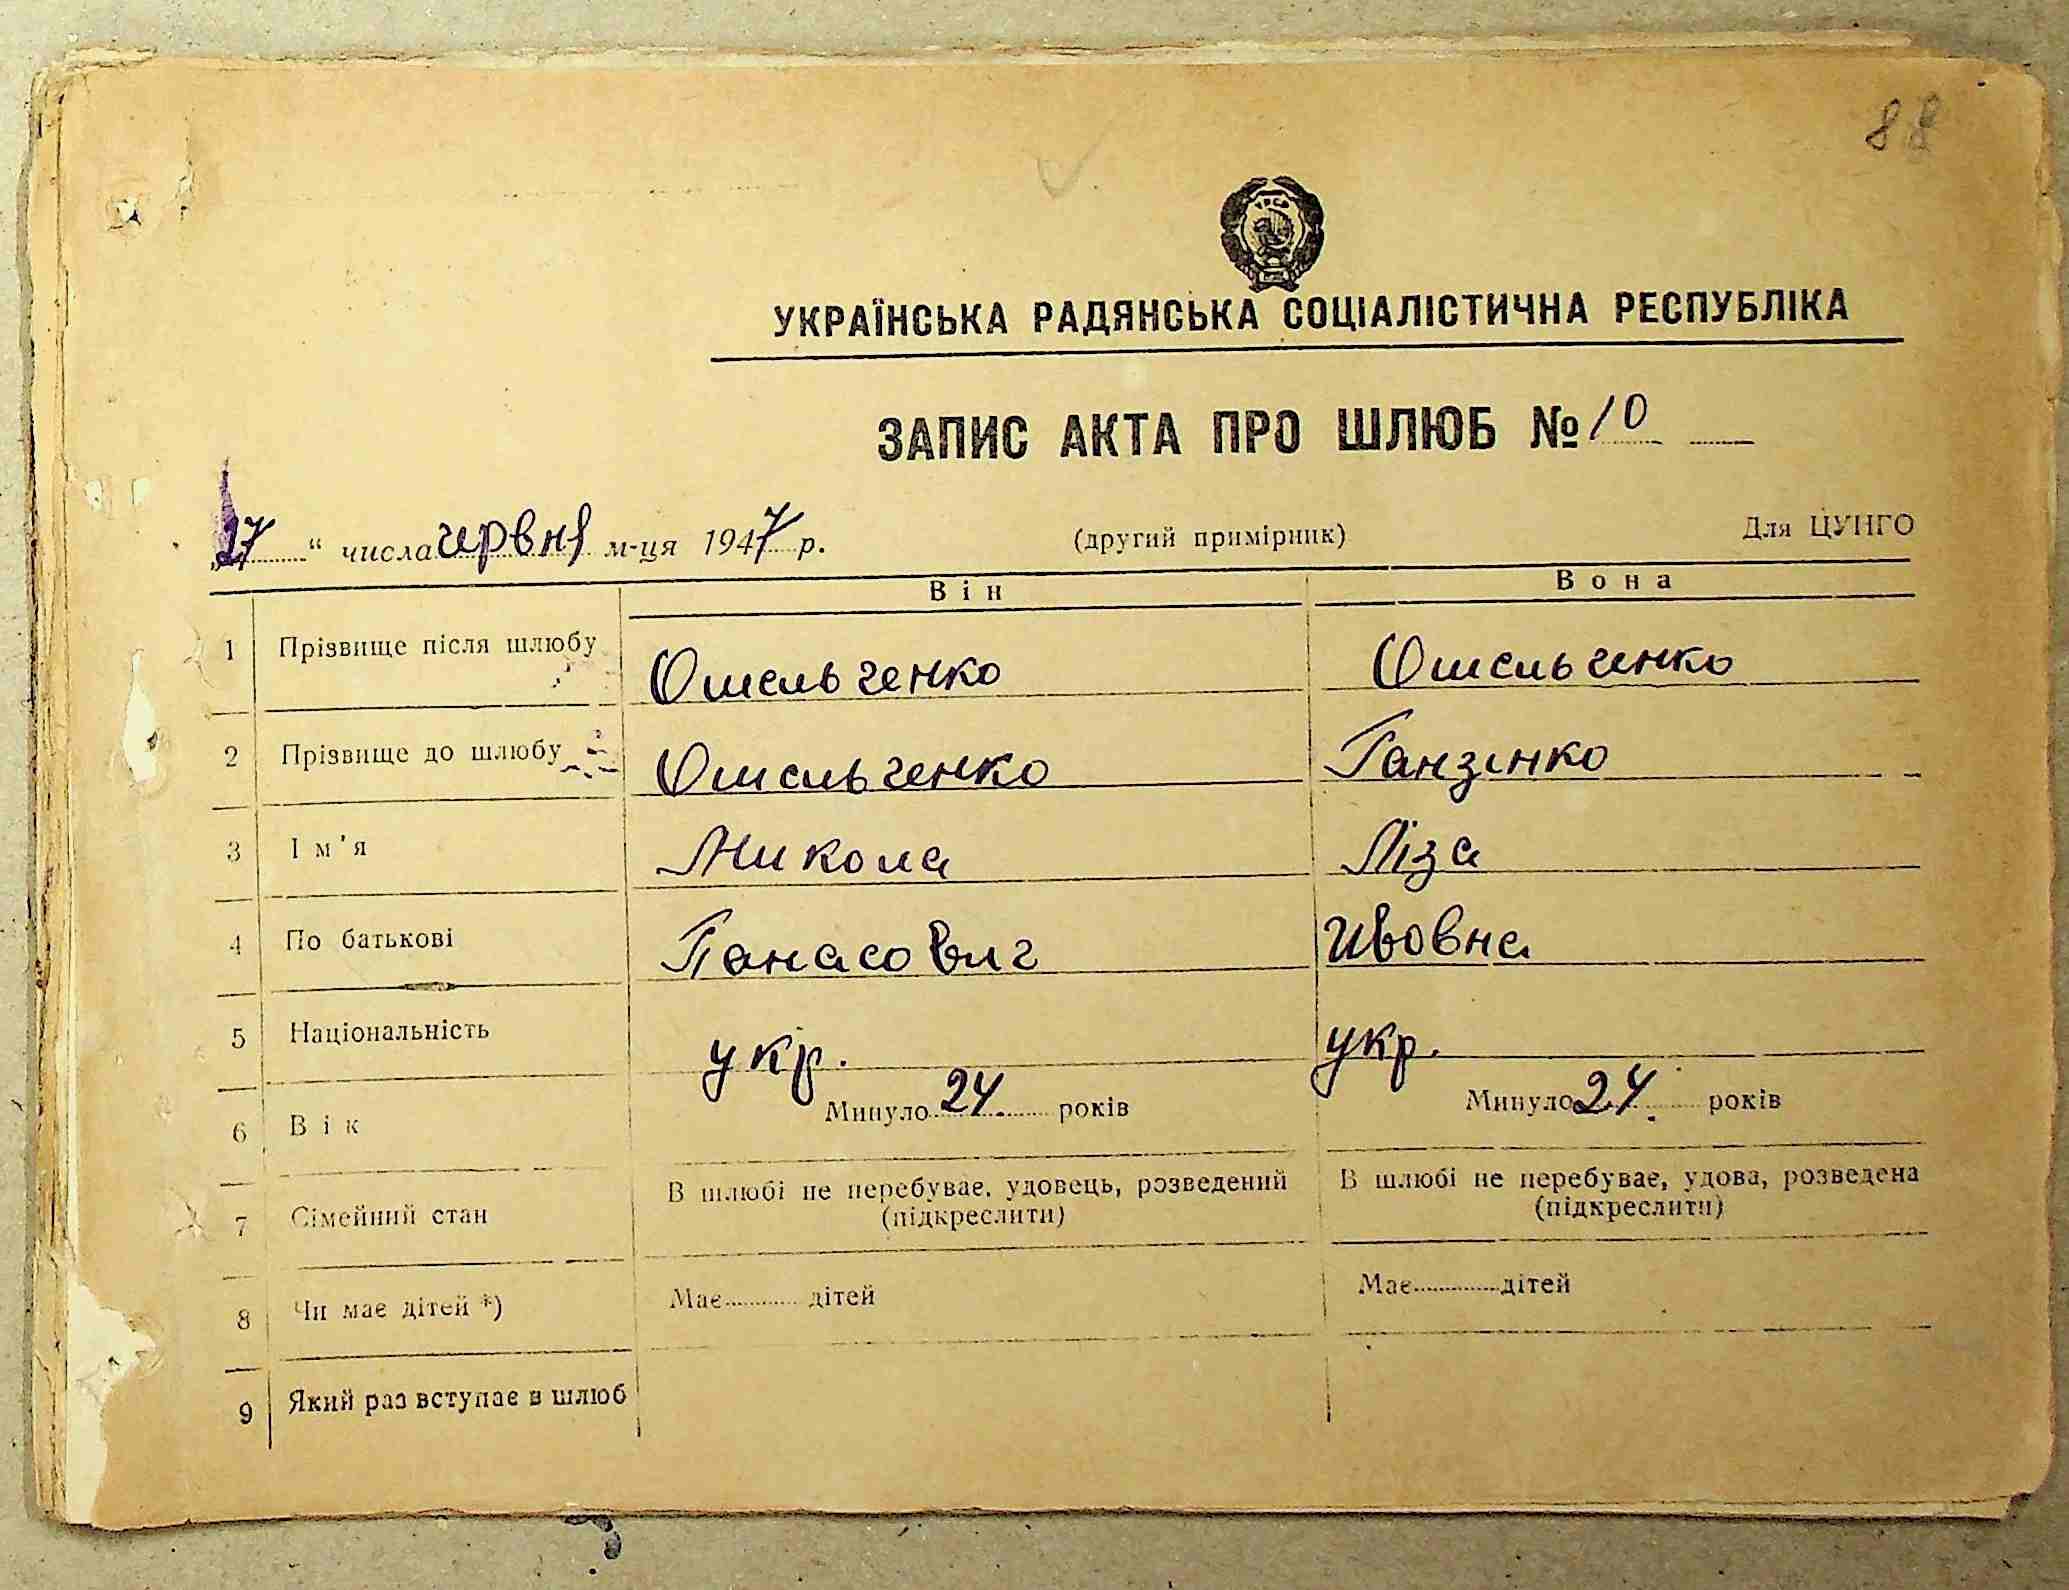 88
УКРАЇНСЬКА РАДЯНСЬКА СОЦІАЛІСТИЧНА РЕСПУБЛІКА
ЗАПИС АКТА ПРО ШЛЮБ № 10
„27“ числа червня м-ця 1947 р. (другий примірник) Для ЦУНГО
Він Вона
1 Прізвище після шлюбу Омельченко Омельченко
2 Прізвище до шлюбу Омельченко Ганзенко
3 Ім'я Микола Ліза
4 По батькові Панасович Ивовна
5 Національність укр. укр.
6 Вік Минуло 24. років Минуло 24. років
7 Сімейний стан В шлюбі не перебуває, удовець, розведений В шлюбі не перебуває, удова, розведена
(підкреслити) (підкреслити)
8 Чи має дітей *) Має дітей Має дітей
9 Який раз вступає в шлюб